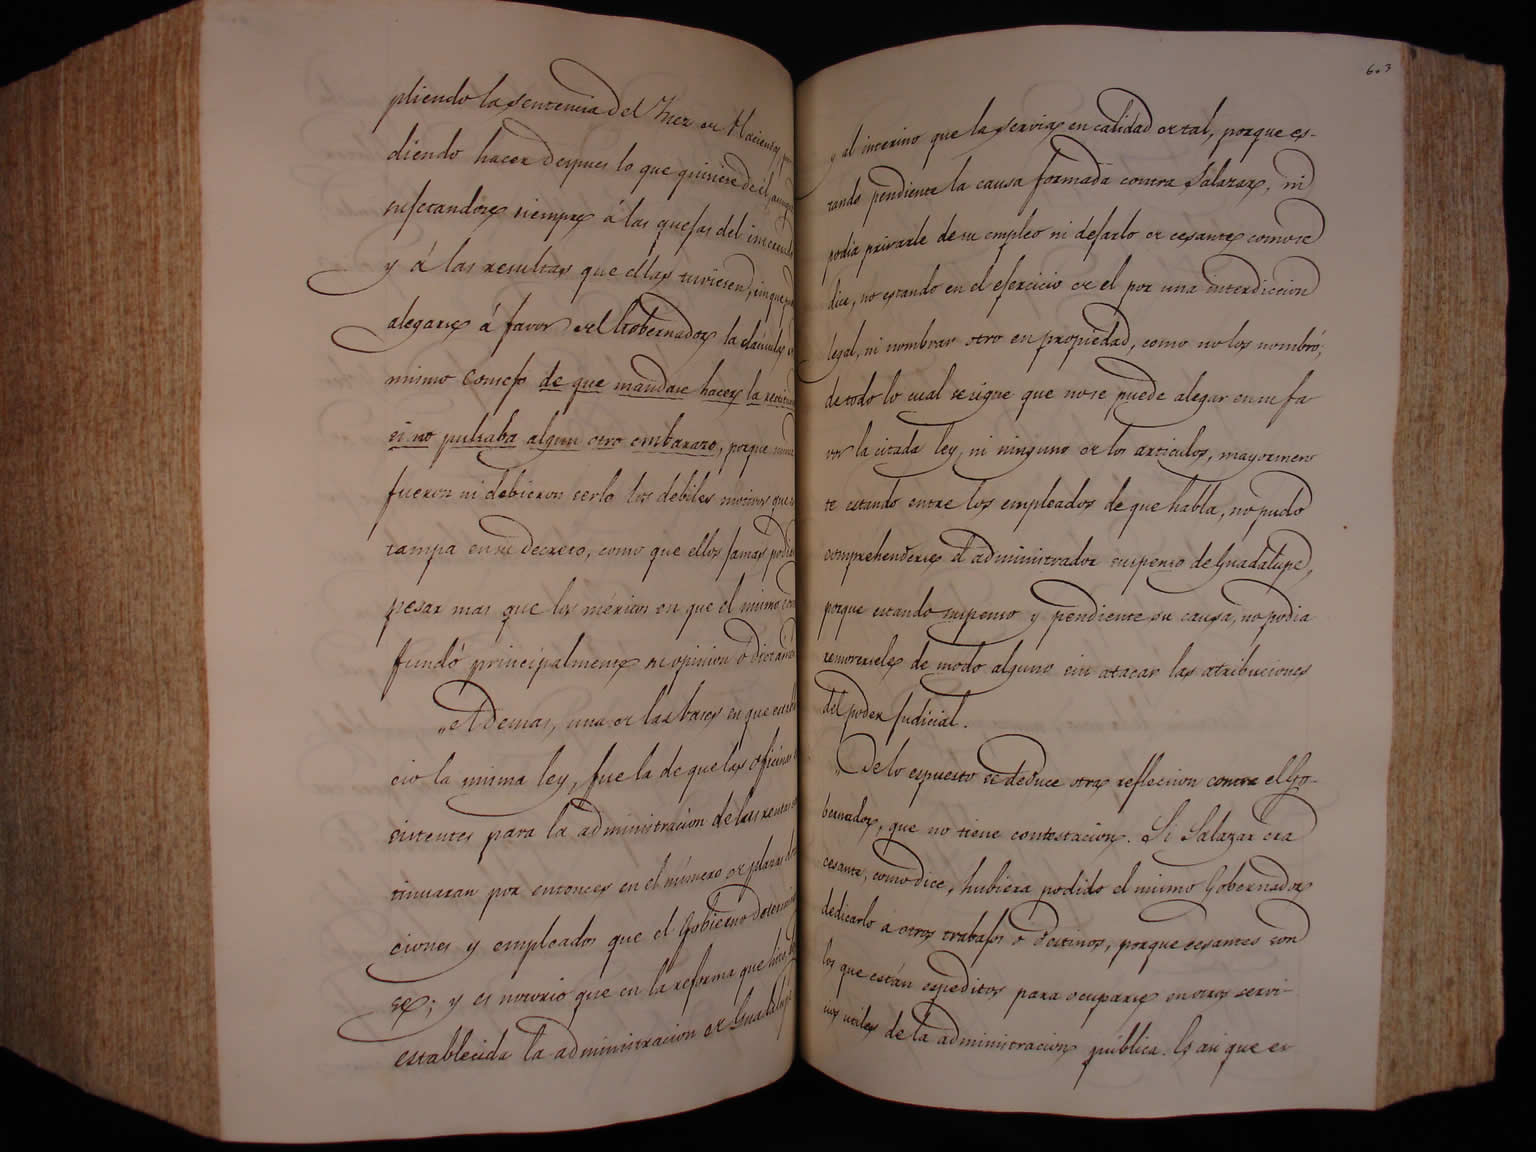 pliendo la sentencia del Juez de Hacienda, 
diendo hacer despues lo que quisiere de él,
sujetandose siempre á las quejas del
y á las resultas que ellas tuviesen, sin que
alegarse á favor del Gobernador la cláusula
mismo Consejo de que mandase hacer la
si no pulsaba algun otro embarazo, porque
fueron ni debieron serlo los debiles motivos que
tampa en su decreto, como que ellos jamas
pesar mas que los méritos en que el mismo
fundó principalmente su opinion ó
„Ademas, una de las bases en que
cio la misma ley, fue la de que las oficinas
sistentes para la administracion de las rentas
tinuaran por entonces en el número de plazas
ciones y empleados que el Gobierno
se; y es notorio que en la reforma que hizo
establecida la administracion de Guadalupe
603
y al interino que la servia en calidad de tal, porque es-
tando pendiente la causa formada contra Salazar, ni
podia privarle de su empleo ni dejarlo de cesante como se
dice, no estando en el ejercicio de el por una interdiccion
legal, ni nombrar otro en propiedad, como no los nombró;
de todo lo cual se sigue que no se puede alegar en su fa
vor la citada ley, ni ninguno de los articulos, mayormen
te estando entre los empleados de que habla, no pudo
comprehenderse el administrador suspenso de Guadalupe,
porque estando suspenso y pendiente su causa, no podia
removersele de modo alguno sin atacar las atribuciones
del poder judicial.
„De lo espuesto se deduce otra reflecsion contra el Go-
bernador, que no tiene contestacion. Si Salazar era
cesante, como dice, hubiera podido el mismo Gobernador
dedicarlo á otros trabajos ó destinos, porque cesantes son
los que están espeditos para ocuparse en otros servi-
cios utiles de la administracion pública. Es asi que es